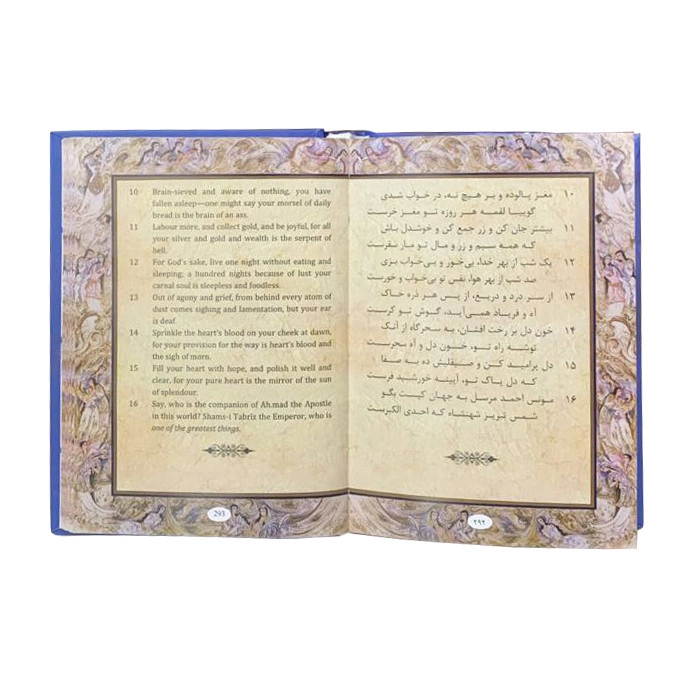 10 Brain-sieved and aware of nothing, you have
fallen asleep—one might say your morsel of daily
bread is the brain of an ass.
11 Labour more, and collect gold, and be joyful, for all
your silver and gold and wealth is the serpent of
hell.
12 For God's sake, live one night without eating and
sleeping; a hundred nights because of lust your
carnal soul is sleepless and foodless.
13 Out of agony and grief, from behind every atom of
dust comes sighing and lamentation, but your ear
is deaf.
14 Sprinkle the heart's blood on your cheek at dawn,
for your provision for the way is heart's blood and
the sigh of morn.
15 Fill your heart with hope, and polish it well and
clear, for your pure heart is the mirror of the sun
of splendour.
16 Say, who is the companion of Ah.mad the Apostle
in this world? Shams-i Tabriz the Emperor, who is
one of the greatest things.
293
۱۰ مغز پالوده و بر هیچ نه، در خواب شدی
گوییا لقمه هر روزه تو مغز خرست
۱۱ بیشتر جان کن و زر جمع کن و خوشدل باش
که همه سیم و زر و مال تو مار سقرست
۱۲ یک شب از بهر خدا، بی‌خور و بی‌خواب بزی
صد شب از بهر هوا، نفس تو بی‌خواب و خورست
۱۳ از سر درد و دریغ، از پس هر ذره خاک
آه و فریاد همی‌آید، گوش تو کرست
۱۴ خون دل بر رخت افشان، به سحرگاه از آنک
توشه راه تو، خون دل و آه سحرست
۱۵ دل پرامید کن و صیقلیش ده به صفا
که دل پاک تو، آیینه خورشید فرست
۱۶ مونس احمد مرسل به جهان کیست بگو
شمس تبریز شهنشاه که احدی الکبرست
۲۹۲